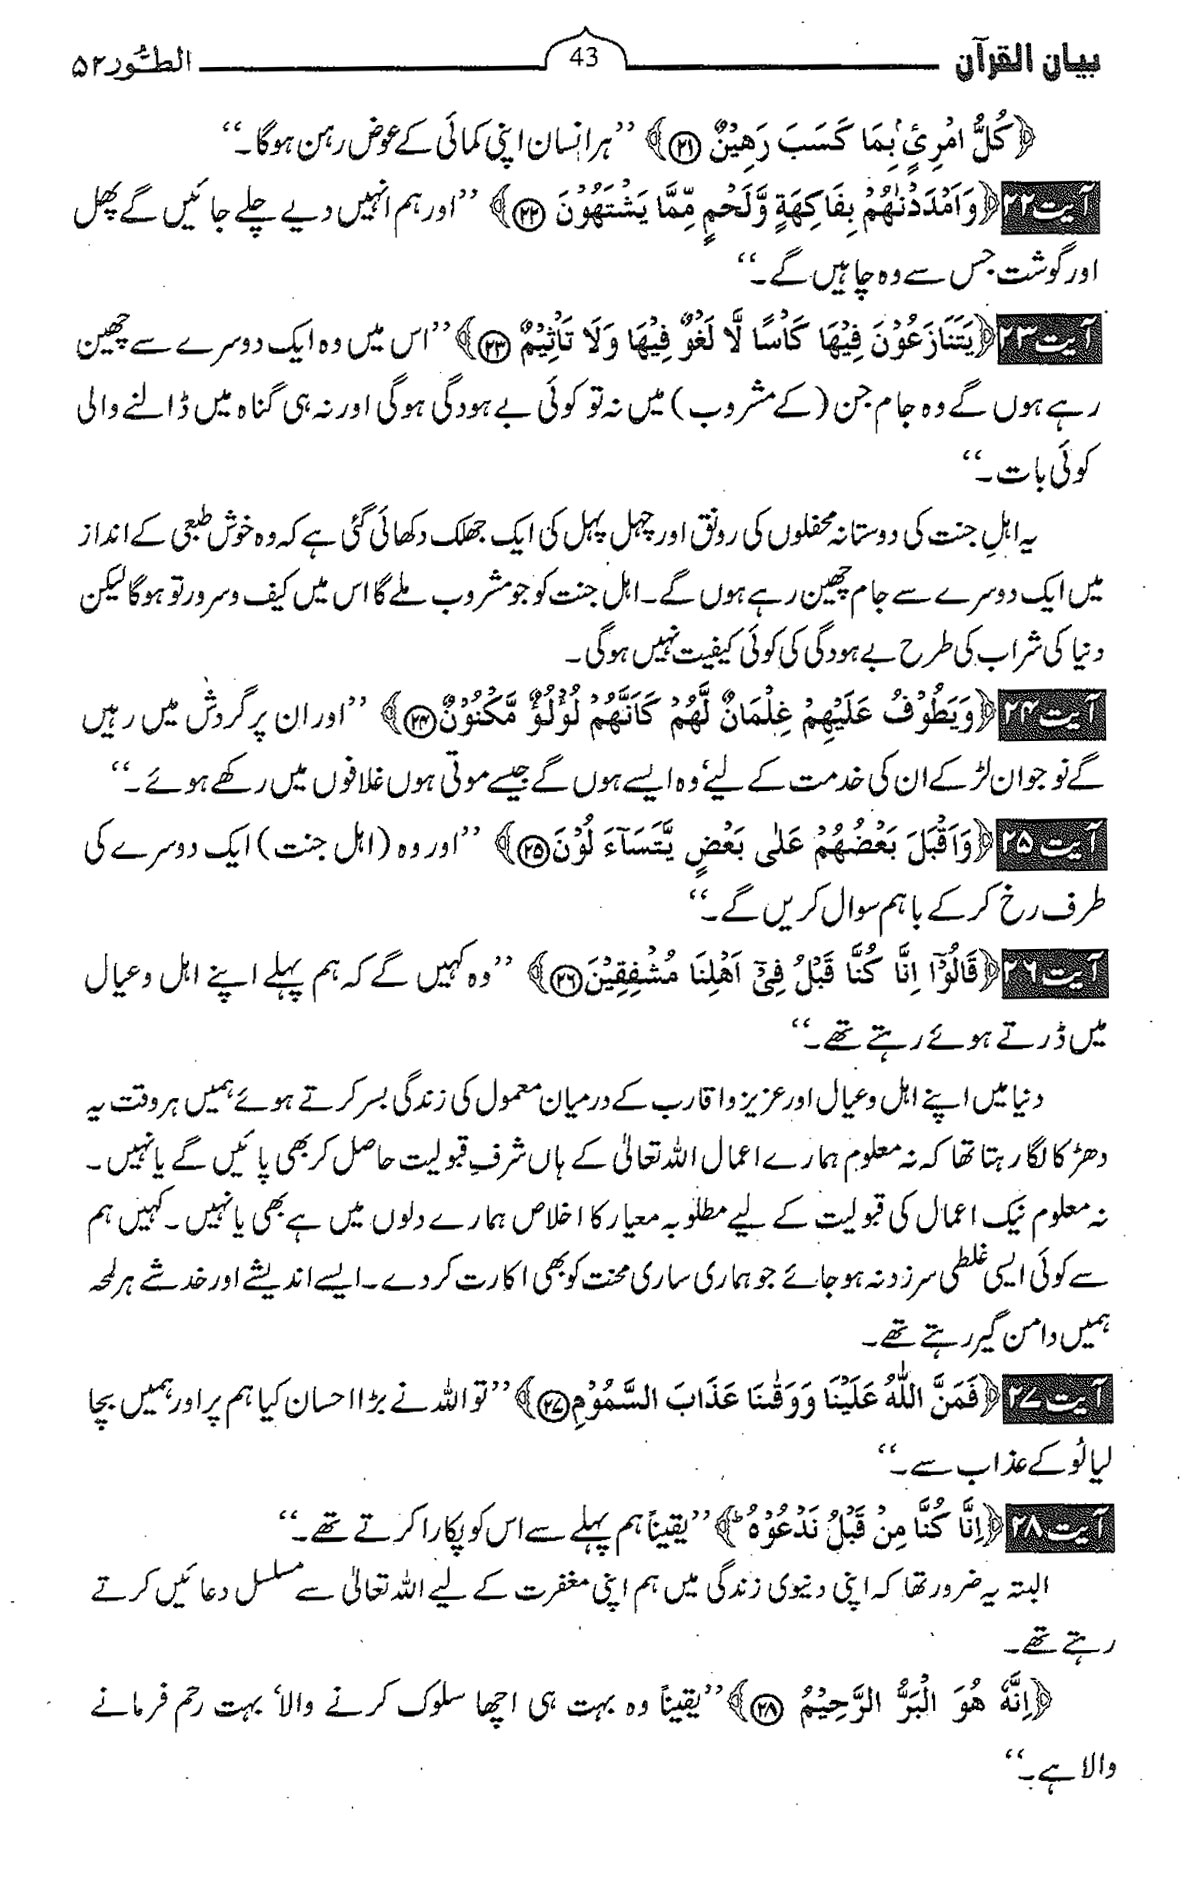 بیان القرآن 43 الطُّور ۵۲
﴿كُلُّ امْرِئٍۭ بِمَا كَسَبَ رَهِيْنٌ ﴿۲۱﴾﴾ ’’ہر انسان اپنی کمائی کے عوض رہن ہوگا۔‘‘
آیت ۲۲ ﴿وَاَمْدَدْنٰهُمْ بِفَاكِهَةٍ وَّلَحْمٍ مِّمَّا يَشْتَهُوْنَ ﴿۲۲﴾﴾ ’’اور ہم انہیں دیے چلے جائیں گے پھل
اور گوشت جس سے وہ چاہیں گے۔‘‘
آیت ۲۳ ﴿يَتَنَازَعُوْنَ فِيْهَا كَاْسًا لَّا لَغْوٌ فِيْهَا وَلَا تَاْثِيْمٌ ﴿۲۳﴾﴾ ’’اس میں وہ ایک دوسرے سے چھین
رہے ہوں گے وہ جام جن (کے مشروب) میں نہ تو کوئی بے ہودگی ہوگی اور نہ ہی گناہ میں ڈالنے والی
کوئی بات۔‘‘
یہ اہلِ جنت کی دوستانہ محفلوں کی رونق اور چہل پہل کی ایک جھلک دکھائی گئی ہے کہ وہ خوش طبعی کے انداز
میں ایک دوسرے سے جام چھین رہے ہوں گے۔ اہل جنت کو جو مشروب ملے گا اس میں کیف و سرور تو ہوگا لیکن
دنیا کی شراب کی طرح بے ہودگی کی کوئی کیفیت نہیں ہوگی۔
آیت ۲۴ ﴿وَيَطُوْفُ عَلَيْهِمْ غِلْمَانٌ لَّهُمْ كَاَنَّهُمْ لُؤْلُؤٌ مَّكْنُوْنٌ ﴿۲۴﴾﴾ ’’اور ان پر گردش میں رہیں
گے نوجوان لڑکے ان کی خدمت کے لیے‘ وہ ایسے ہوں گے جیسے موتی ہوں غلافوں میں رکھے ہوئے۔‘‘
آیت ۲۵ ﴿وَاَقْبَلَ بَعْضُهُمْ عَلٰى بَعْضٍ يَّتَسَآءَ لُوْنَ ﴿۲۵﴾﴾ ’’اور وہ (اہل جنت) ایک دوسرے کی
طرف رخ کر کے باہم سوال کریں گے۔‘‘
آیت ۲۶ ﴿قَالُوْٓا اِنَّا كُنَّا قَبْلُ فِىْٓ اَهْلِنَا مُشْفِقِيْنَ ﴿۲۶﴾﴾ ’’وہ کہیں گے کہ ہم پہلے اپنے اہل و عیال
میں ڈرتے ہوئے رہتے تھے۔‘‘
دنیا میں اپنے اہل و عیال اور عزیز و اقارب کے درمیان معمول کی زندگی بسر کرتے ہوئے ہمیں ہر وقت یہ
دھڑکا لگا رہتا تھا کہ نہ معلوم ہمارے اعمال اللہ تعالیٰ کے ہاں شرفِ قبولیت حاصل کر بھی پائیں گے یا نہیں۔
نہ معلوم نیک اعمال کی قبولیت کے لیے مطلوبہ معیار کا اخلاص ہمارے دلوں میں ہے بھی یا نہیں۔ کہیں ہم
سے کوئی ایسی غلطی سرزد نہ ہو جائے جو ہماری ساری محنت کو بھی اکارت کر دے۔ ایسے اندیشے اور خدشے ہر لمحہ
ہمیں دامن گیر رہتے تھے۔
آیت ۲۷ ﴿فَمَنَّ اللّٰهُ عَلَيْنَا وَوَقٰىنَا عَذَابَ السَّمُوْمِ ﴿۲۷﴾﴾ ’’تو اللہ نے بڑا احسان کیا ہم پر اور ہمیں بچا
لیا لُو کے عذاب سے۔‘‘
آیت ۲۸ ﴿اِنَّا كُنَّا مِنْ قَبْلُ نَدْعُوْهُ ؕ﴾ ’’یقیناً ہم پہلے سے اس کو پکارا کرتے تھے۔‘‘
البتہ یہ ضرور تھا کہ اپنی دنیوی زندگی میں ہم اپنی مغفرت کے لیے اللہ تعالیٰ سے مسلسل دعائیں کرتے
رہتے تھے۔
﴿اِنَّهٗ هُوَ الْبَرُّ الرَّحِيْمُ ﴿۲۸﴾﴾ ’’یقیناً وہ بہت ہی اچھا سلوک کرنے والا‘ بہت رحم فرمانے
والا ہے۔‘‘